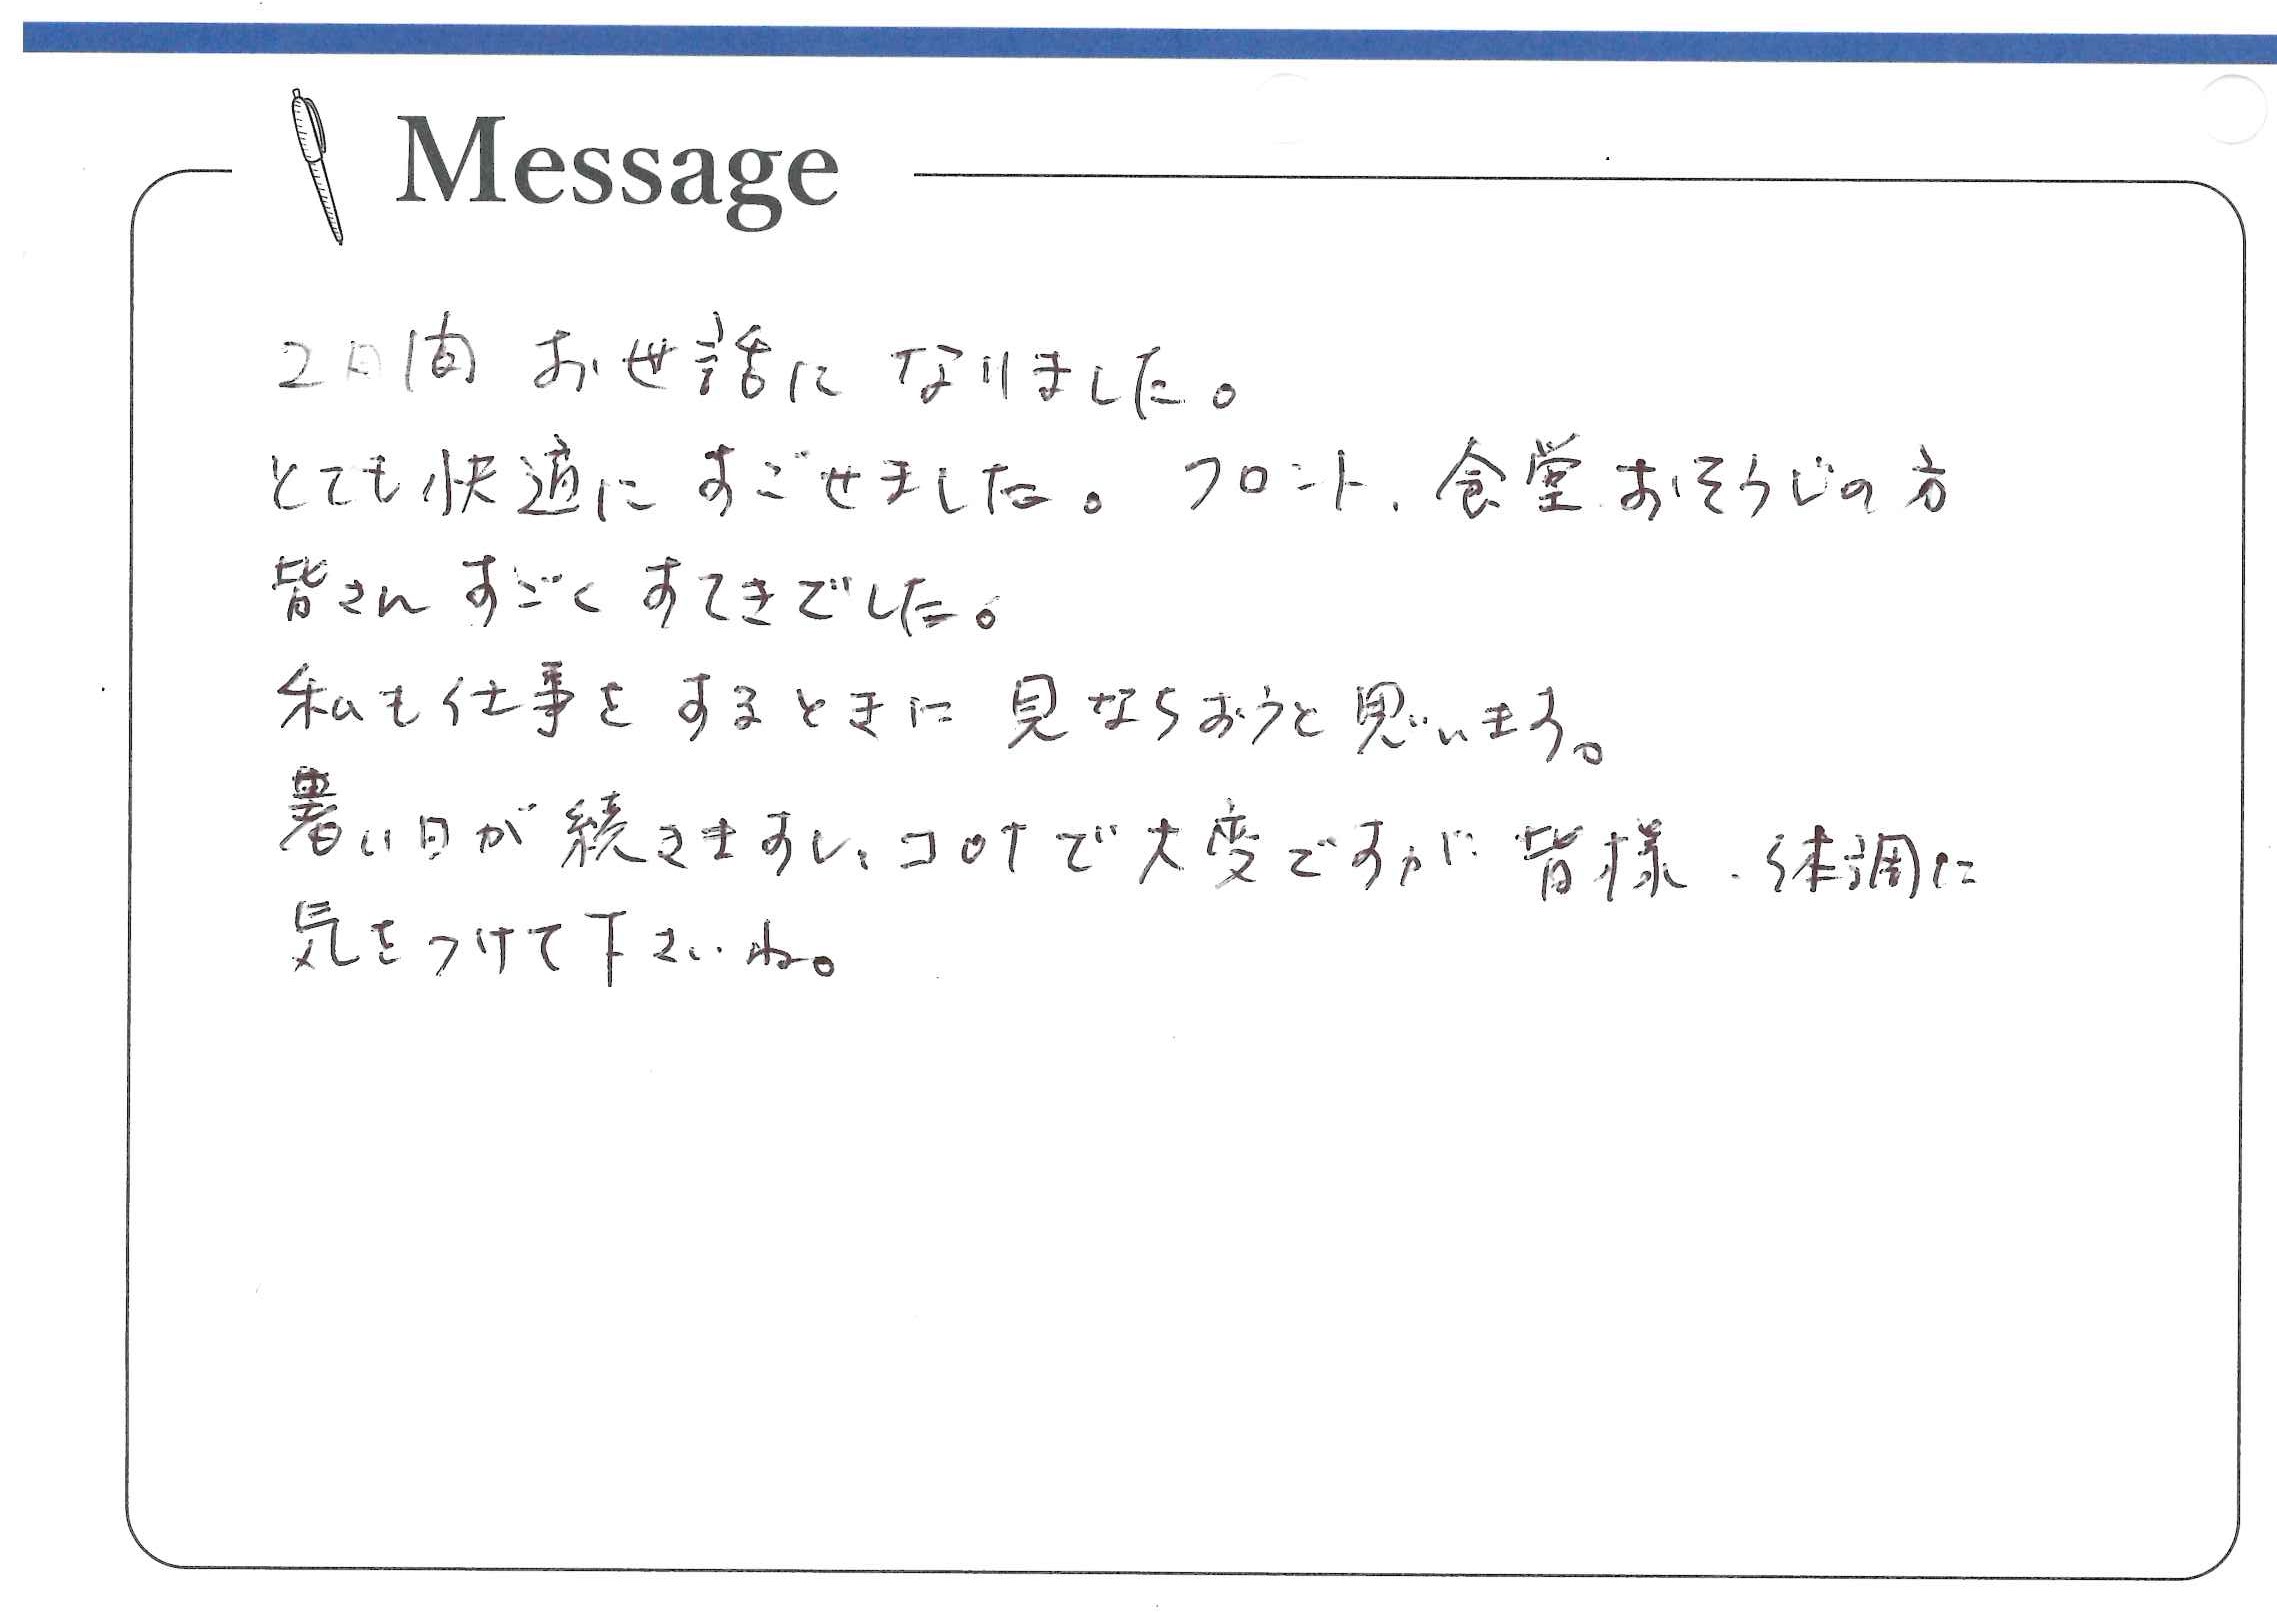 Message
2日間 お世話に なりました。
とても快適に すごせました。 フロント、食堂 おそうじの方
皆さん すごく すてきでした。
私も仕事を するときに 見ならおうと思います。
暑い日が続きますし、コロナで大変ですが 皆様、体調に
気をつけて下さいね。